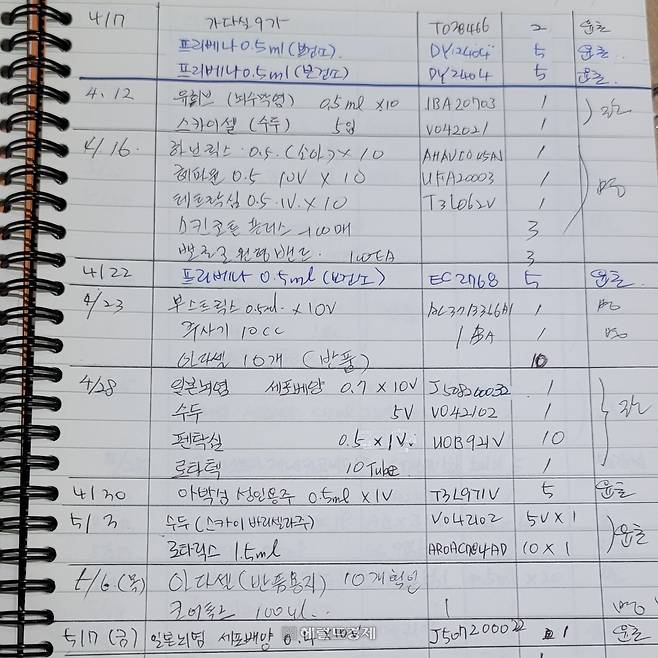 4/17 가다실 9가 T028466 2 윤호
프리베나 0.5ml (보건소) DY2404 5 윤호
프리베나 0.5ml (보건소) DY2404 5 윤호
4.12 유히브 (뇌수막염) 0.5ml x10 1BA20703 1
스카이셀 (수두) 5입 V042021 1
4/16. 하브릭스 0.5 (소아) x 10 1
헤파뮨 0.5 10V x 10 UFA20003 1
테트락심 0.5 .1V. x 10 T3L062V 1
스킨코튼 플러스 3
원형밴드 100EA 3
4/22 프리베나 0.5ml (보건소) EC2768 5 윤호
4/23 부스트릭스 0.5ml. x 10V 1
주사기 10CC 1 BA 1
이다셀 10개 (반품) 10
4/28 일본뇌염 세포배양 0.7 x 10V 1
수두 5V V042102 1
펜탁실 0.5 x 1V. U0B921V 10
로타텍 10Tube 1
4/30 아박심 성인용주 0.5ml x 1V T3L971V 5 윤호
5/3 수두 (스카이바리셀라주) V042102 5V x 1 윤호
로타릭스 1.5ml 10 x 1
5/6 (목) 이다셀 (반품용지) 10개 확인
100ul.. 1
5/7 (금) 일본뇌염 세포배양 1